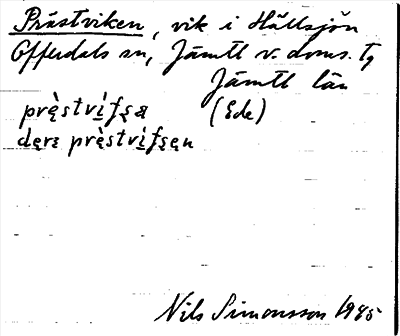 Prästviken, vik i Hällsjön
Offerdals sn, Jämtl v. doms. Tg
Jämtl län
prę̀stvi̱fsę̱a (Ede)
dęrε prę̀stvi̱fsę̱n
Nils Simonsson 1985